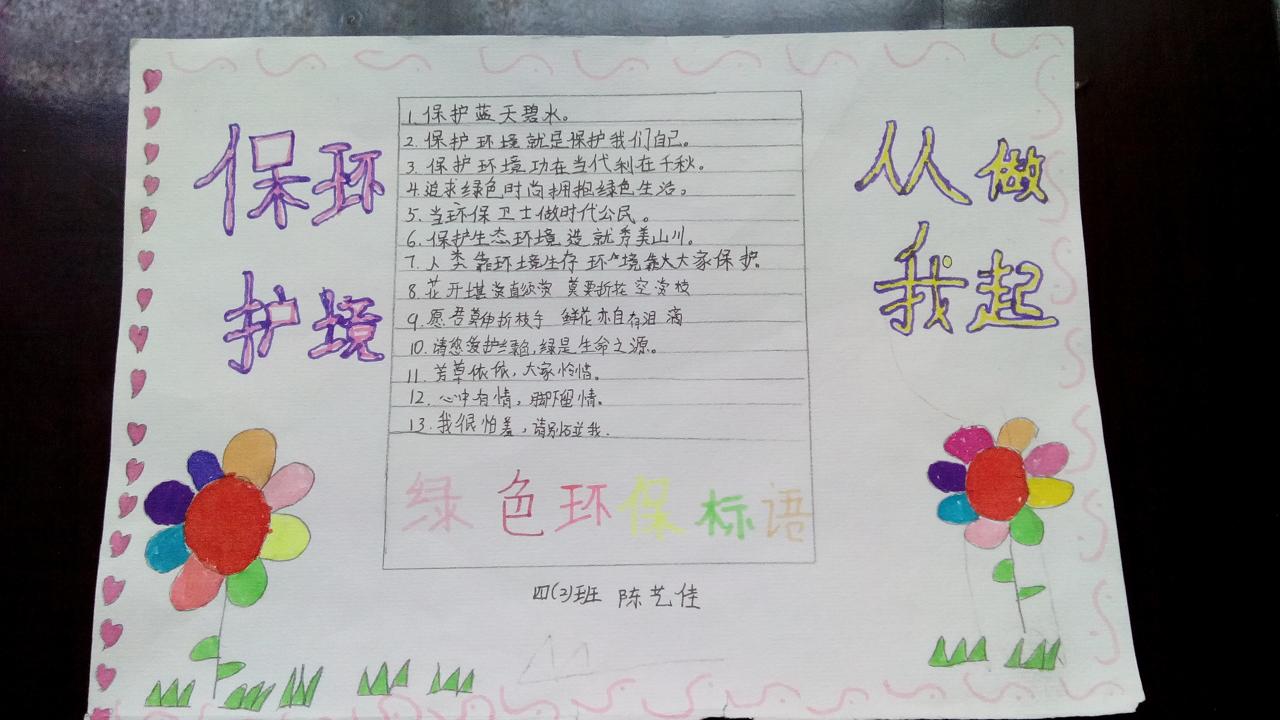 保环
护境
1.保护蓝天碧水。
2.保护环境就是保护我们自己。
3.保护环境功在当代利在千秋。
4.追求绿色时尚拥抱绿色生活。
5.当环保卫士做时代公民。
6.保护生态环境造就秀美山川。
7.人类靠环境生存环境靠大大家保护。
8.花开堪赏直须赏 莫要折花空赏枝
9.愿君莫伸折枝手 鲜花亦自有泪滴
10.请您爱护绿色,绿是生命之源。
11.芳草依依,大家怜惜。
12.心中有情,脚下留情。
13.我很怕羞,请别碰我.
绿色环保标语
从做
我起
四(2)班 陈艺佳